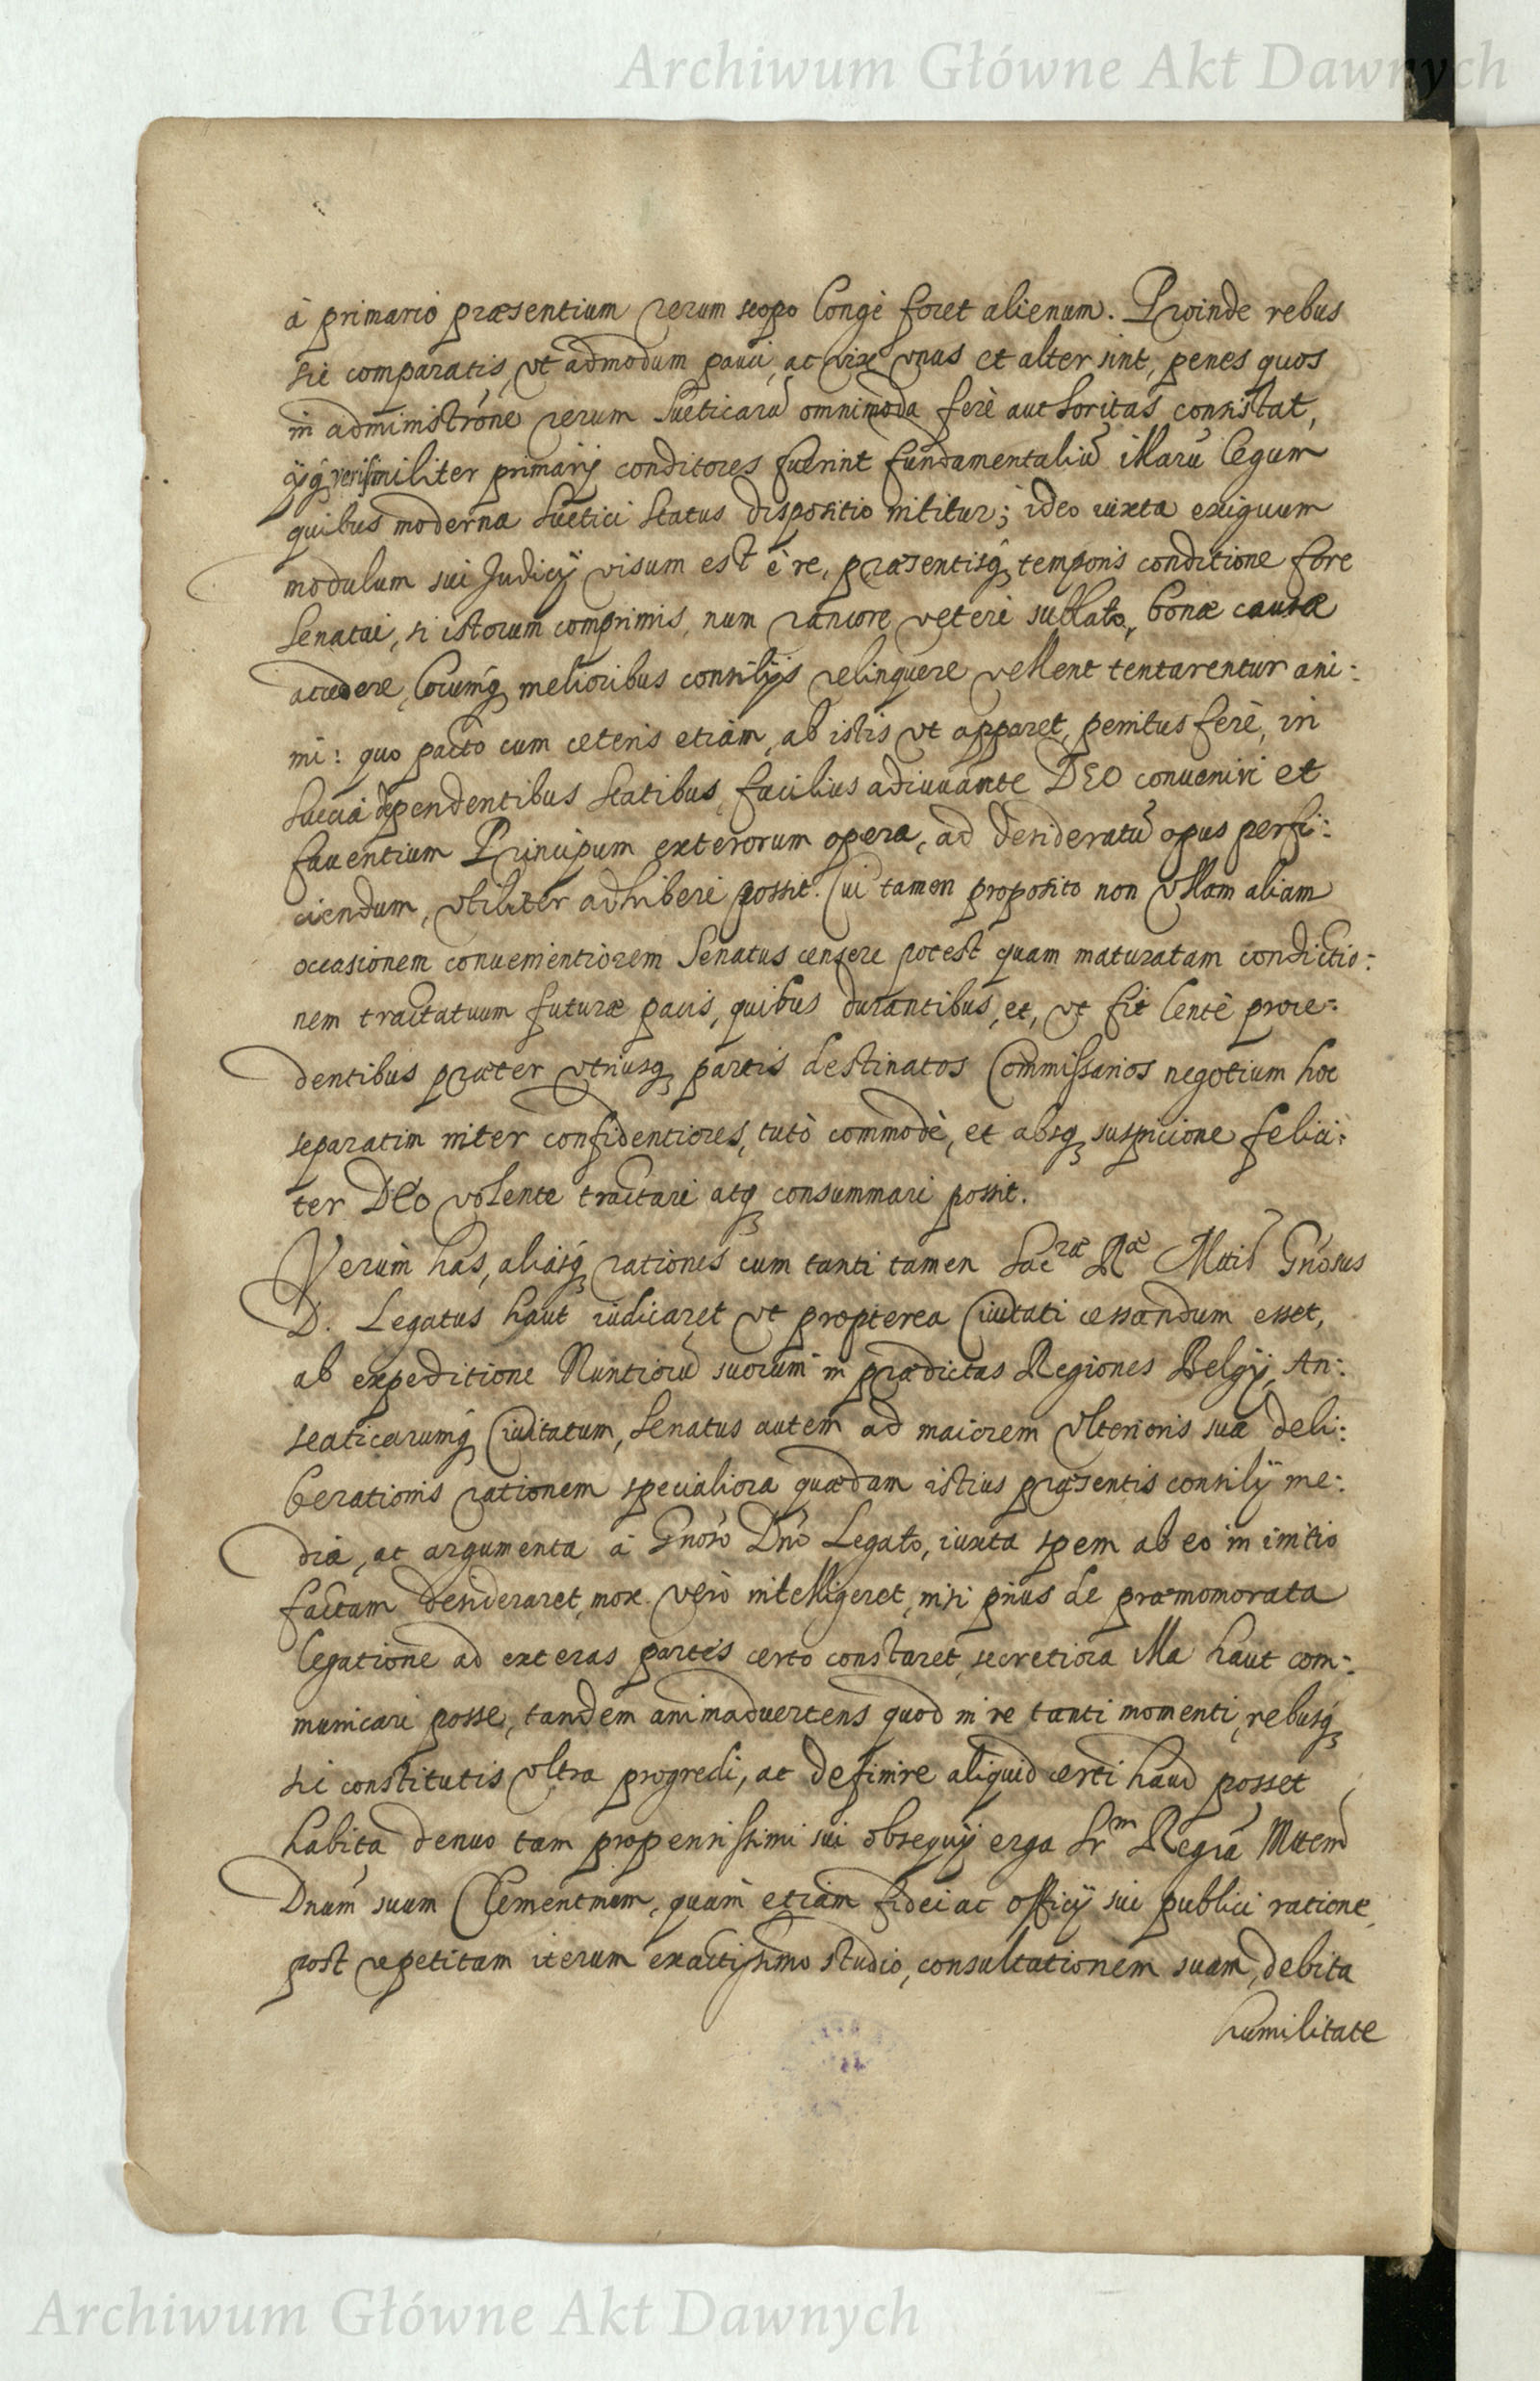 Archiwum Główne Akt Dawnych
à primario præsentium rerum scopo longè foret alienum. Proinde rebus
sic comparatis, vt admodum pauci, ac vix vnus et alter sint, penes quos
in administrõne rerum Sueticarũ omnimoda ferè authoritas consistat,
ijq́ verisimiliter primarij conditores fuerint fundamentaliũ illarũ legum
quibus moderna Suetici Status dispositio nititur; ideo iuxta exiguum
modulum sui Judicij visum est è re, præsentisq́ temporis conditione fore
Senatui, si istorum comprimis, num rancore veteri sublato, bonæ causæ
accedere, locumq́ melioribus consilijs relinquere vellent tentarentur ani:
mi: quo pacto cum ceteris etiam, ab istis vt apparet, penitus ferè, in
Suecia dependentibus Statibus, facilius adiuuante DEO conueniri et
fauentium Principum exterorum opera, ad desideratũ opus perfi:
ciendum, vtiliter adhiberi possit. Cui tamen proposito non vllam aliam
occasionem conuenientiorem Senatus censere potest quam maturatam condictio:
nem tractatuum futuræ pacis, quibus durantibus, et, vt fit lentè proce:
dentibus præter vtriusq́ partis destinatos Commissarios negotium hoc
separatim inter confidentiores, tutò commodè, et absq́ suspicione felici:
ter DEo volente tractari atq́ consummari possit.
Verùm has, aliasq́ rationes cum tanti tamen Sacræ Ræ Mttis Gñosus
D. Legatus haut iudicaret vt propterea Ciuitati cessandum esset,
ab expeditione Nuntiorũ suorum in prædictas Regiones Belgij, An:
seaticarumq́ Ciuitatum, Senatus autem ad maiorem vlterioris suæ deli:
berationis rationem specialiora quædam istius præsentis consilij me:
dia, ac argumenta à Gñoso Dño Legato, iuxta spem ab eo in initio
factam desideraret, mox verò intelligeret, nisi prius de præmomorata
legatione ad exteras partes certo constaret, secretiora illa haut com:
municari posse, tandem animaduertens quod in re tanti momenti, rebusq́
sic constitutis vltra progredi, ac definire aliquid certi haud posset
habita denuo tam propensissimi sui obsequij erga Srm Regiã Mttem
Dnum suum Clementmum, quàm etiam fidei ac officij sui publici ratione,
post repetitam iterum exactissimo studio, consultationem suam, debita
humilitate
Archiwum Główne Akt Dawnych